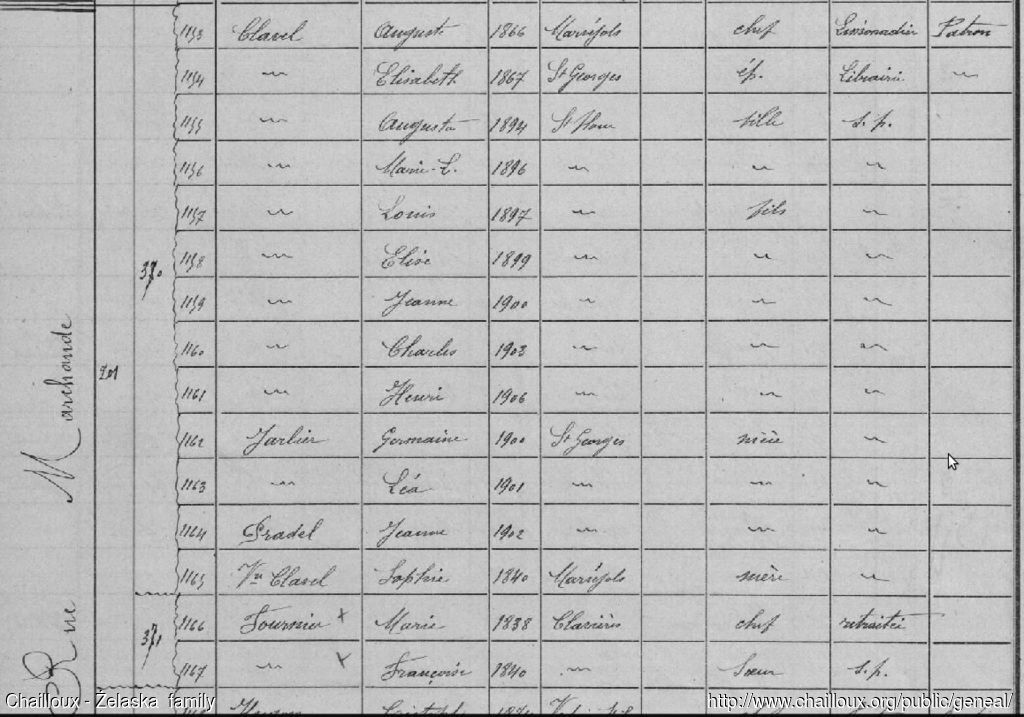 Rue Marchande
201
370
1153 Clavel Auguste 1866 Marvéjols chef Limonadier Patron
1154 〃 Elisabeth 1867 St Georges ép. Libraire 〃
1155 〃 Augusta 1894 St Flour fille s. p.
1156 〃 Marie-L. 1896 〃 〃 〃
1157 〃 Louis 1897 〃 fils 〃
1158 〃 Elise 1899 〃 〃 〃
1159 〃 Jeanne 1900 〃 〃 〃
1160 〃 Charles 1903 〃 〃 〃
1161 〃 Henri 1906 〃 〃 〃
1162 Jarlier Germaine 1900 St Georges nièce 〃
1163 〃 Léa 1901 〃 〃 〃
1164 Pradel Jeanne 1902 〃 〃 〃
1165 Vve Clavel Sophie 1840 Marvéjols mère 〃
371
1166 Fournier x Marie 1838 Clavières chef retraitée
1167 〃 x Françoise 1840 〃 Sœur s.p.
Chailloux - Želaska family
http://www.chailloux.org/public/geneal/